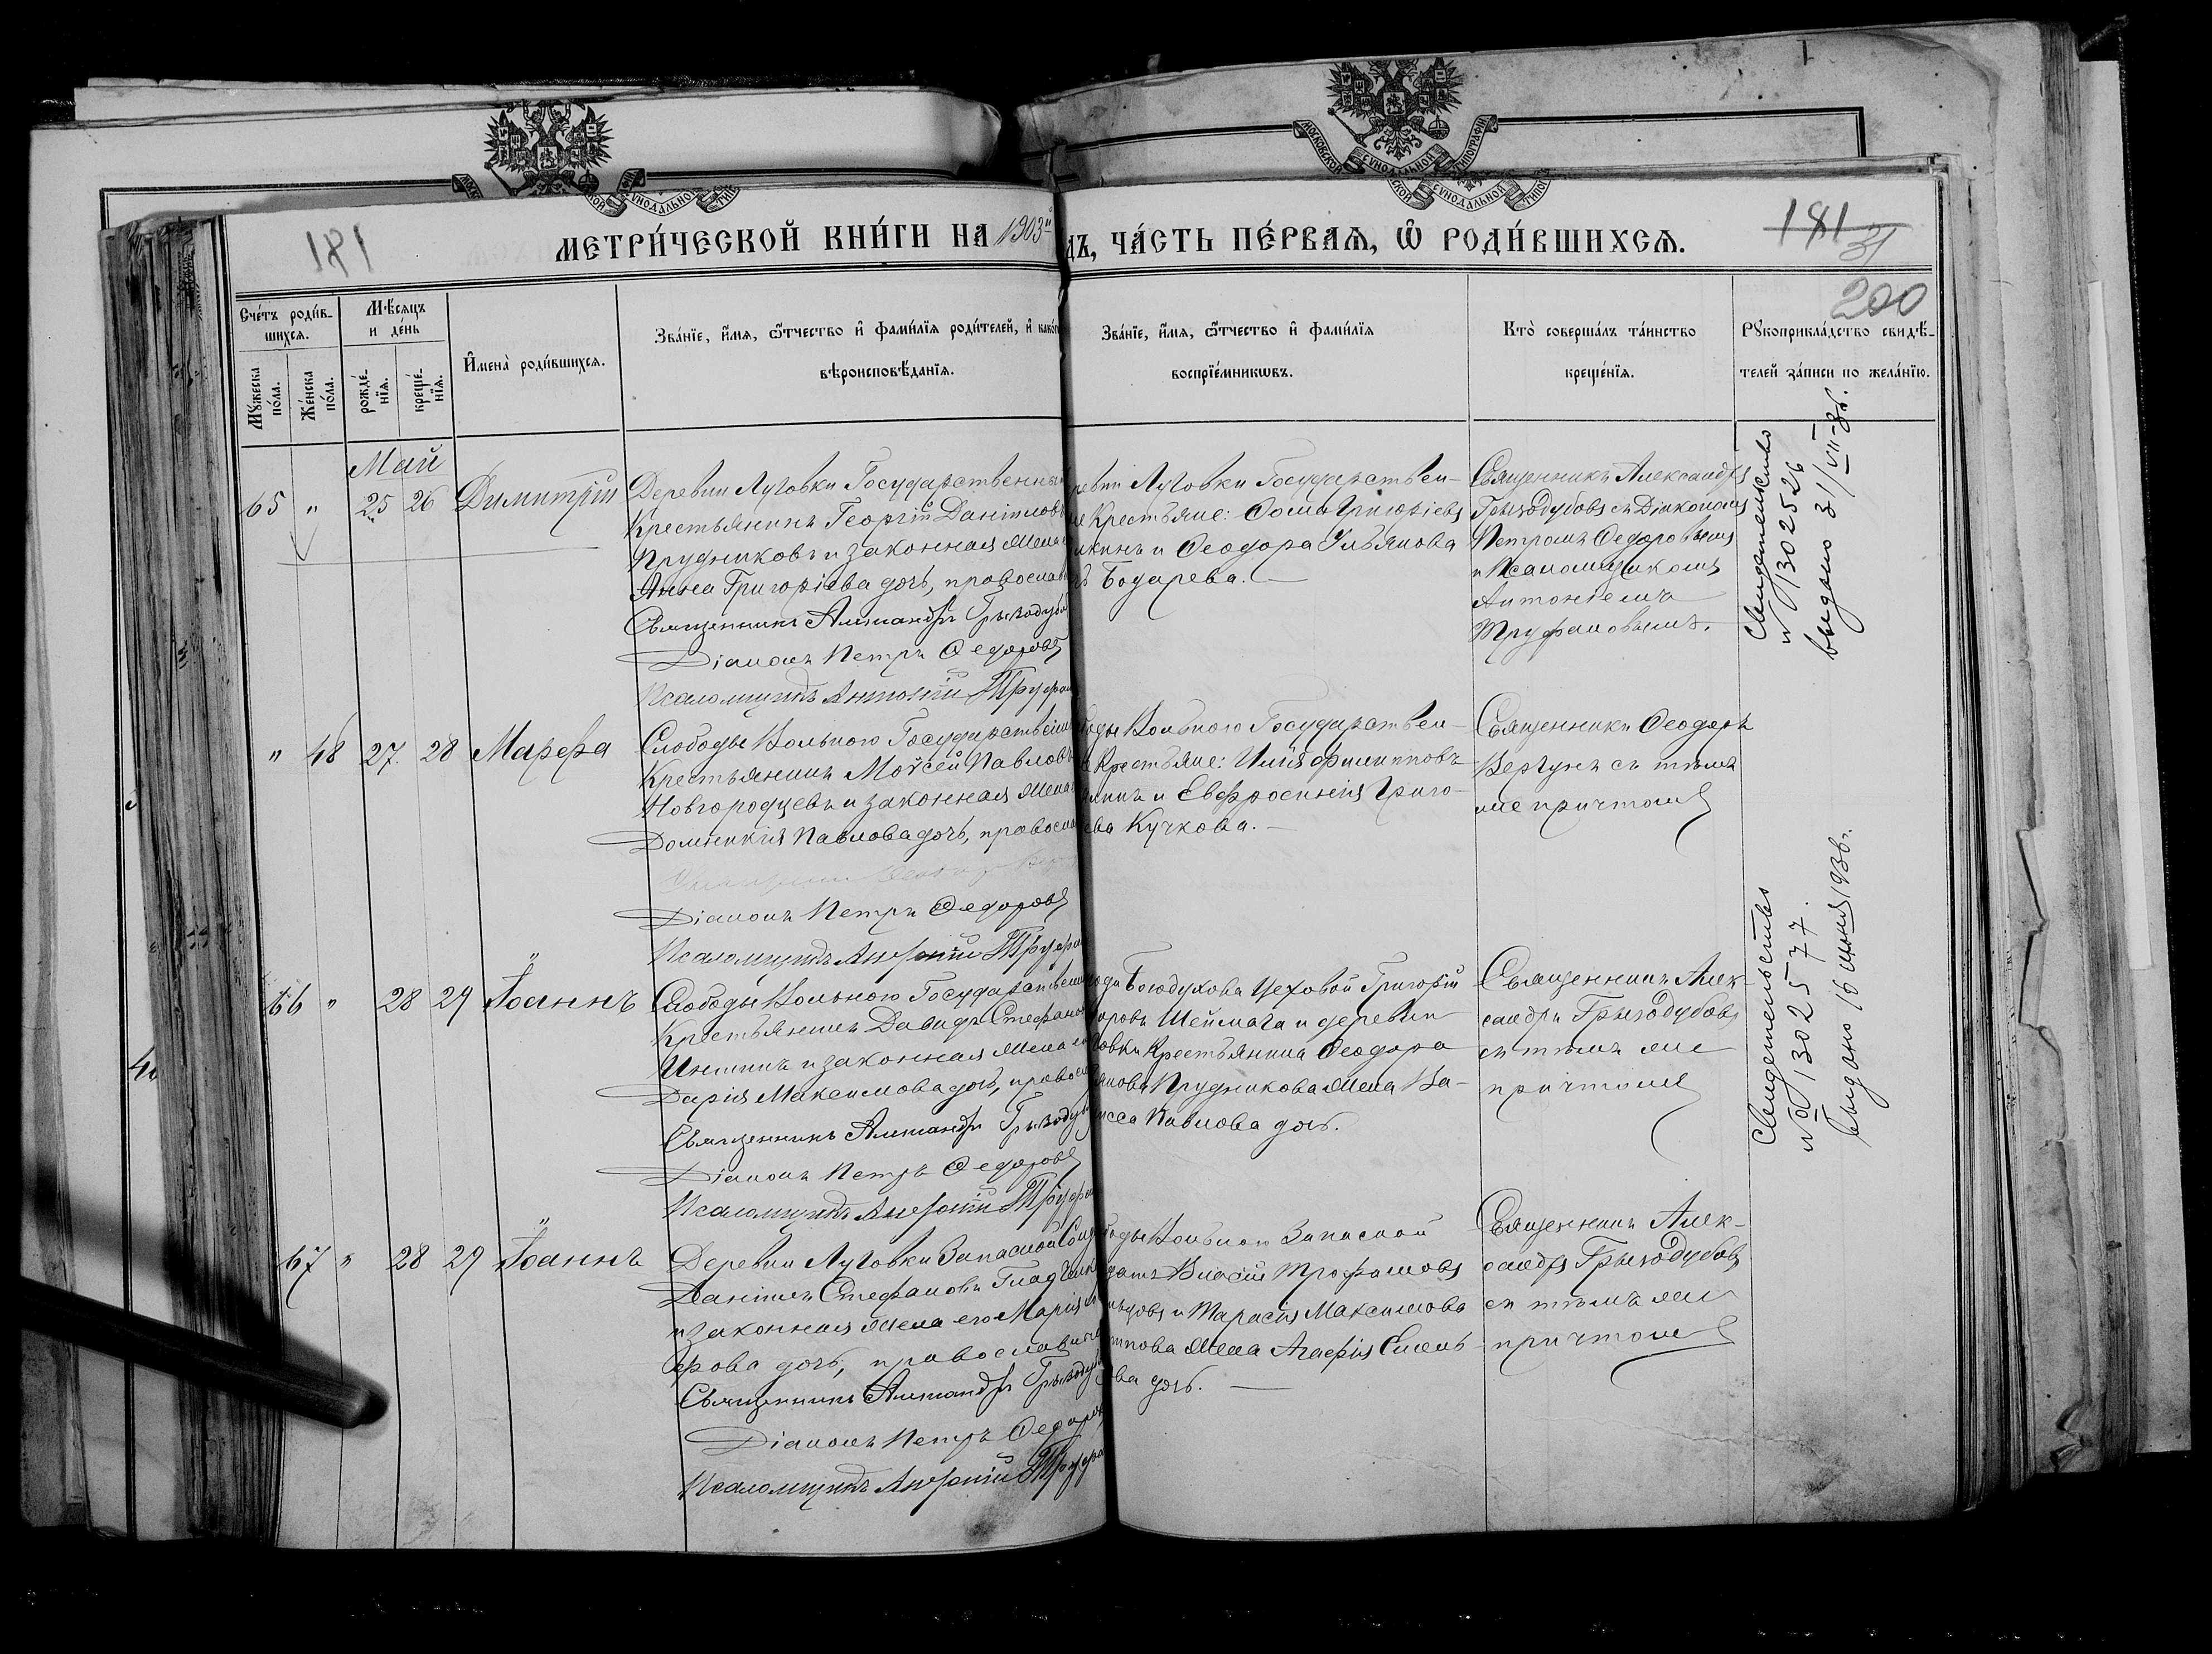 181
МЕТРИ́ЧЕСКОЙ КНИ́ГИ НА 1903й
дъ, ЧА́СТЬ ПЕ́РВАѦ, Ѡ РОДИ́ВШИХСѦ.
181
31
200
Сче́тъ роди́в-
шихся.
Мꙋ́жеска по́ла.
Же́нска по́ла.
Мѣ́сяцъ и де́нь
рожде́-нїя.
креще́-нїя.
И҆мена̀ роди́вшихся.
Зва́нїе, и҆́мя, ѻ҆́тчество и҆ фами́лїя роди́телей, и҆ како́г
вѣроисповѣ́данїя.
Зва́нїе, и҆́мя, ѻ҆́тчество и҆ фами́лїя
воспрїе́мникѡвъ.
Кто̀ соверша́лъ та́инство
креще́нїя.
Рꙋкоприкла́дство свидѣ́-
телей за́писи по жела́нїю.
Май
65 " 25 26 Димитрій
Деревни Луговки Государственный
Крестьянинъ Георгій Даніиловъ
Прудниковъ и законная жена
Анна Григоріева дочь, православн
Священникъ Александръ Грызодубо
Діаконъ Петръ Ѳедоровъ
Псаломщикъ Антоній Труфан
ревни Луговки Государствен-
ые Крестьяне: Ѳома Григоріевъ
и Ѳеодора Ульянова
Бодарева.
Священникъ Александръ
Грызодубовъ съ Діакономъ
Петромъ Ѳедоровымъ
и Псаломщикомъ
Антоніемъ
Труфановымъ.
Свидетельство
№ 1302526
выдано 31/VII-36.
" 48 27 28 Марѳа
Слободы Вольного Государственный
Крестьянинъ Мойсей Павловъ
Новгородцевъ и законная жена
Домникія Павлова дочь, православ
Діаконъ Петръ Ѳедоровъ
Псаломщикъ Антоній Труфан
оды Вольного Государствен-
е Крестьяне: Илія Филипповъ
и Евфросинія Григо-
ева Кучкова.
Священникъ Ѳеодоръ
Вергунъ съ тѣмъ
же причтомъ
66 " 28 29 Іоаннъ
Слободы Вольного Государствен
Крестьянинъ Давидъ Стефанов
и законная жена
Дарія Максимова дочь, правосл
Священникъ Александръ Грызодуб
Діаконъ Петръ Ѳедоровъ
Псаломщикъ Антоній Труфан
ода Богодухова Цеховой Григорій
оровъ и деревни
овки Крестьянина Ѳеодора
Прудникова жена Ва-
сса Павлова дочь.
Священникъ Алек-
сандръ Грызодубовъ
съ тѣмъ же
причтомъ
Свидетельство
№ 1302577.
выдано 16 июня 1936г.
67 " 28 29 Іоаннъ
Деревни Луговки Запасной Солд
Даніилъ Стефановъ
и законная жена его Марія
дочь, православн
Священникъ Александръ Грызодуб
Діаконъ Петръ Ѳедоров
Псаломщикъ Антоній Труфан
оды Вольного Запасной
датъ Власій Трофимовъ
и Тарасія Максимова
жена Агафія Емель-
ова дочь.
Священникъ Алек-
сандръ Грызодубовъ
съ тѣмъ же
причтомъ